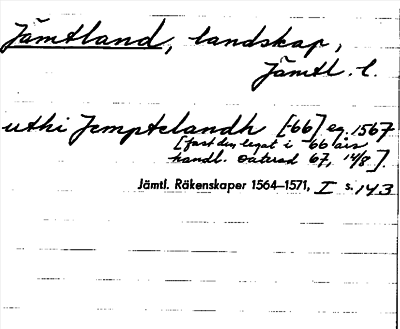 Jämtland, landskap,
Jämtl. l.
uthi Jemptelandh [-66] eg. 1567
[fast den legat i -66 års
handl. daterad 67, 14/8].
Jämtl. Räkenskaper 1564–1571, I s. 143